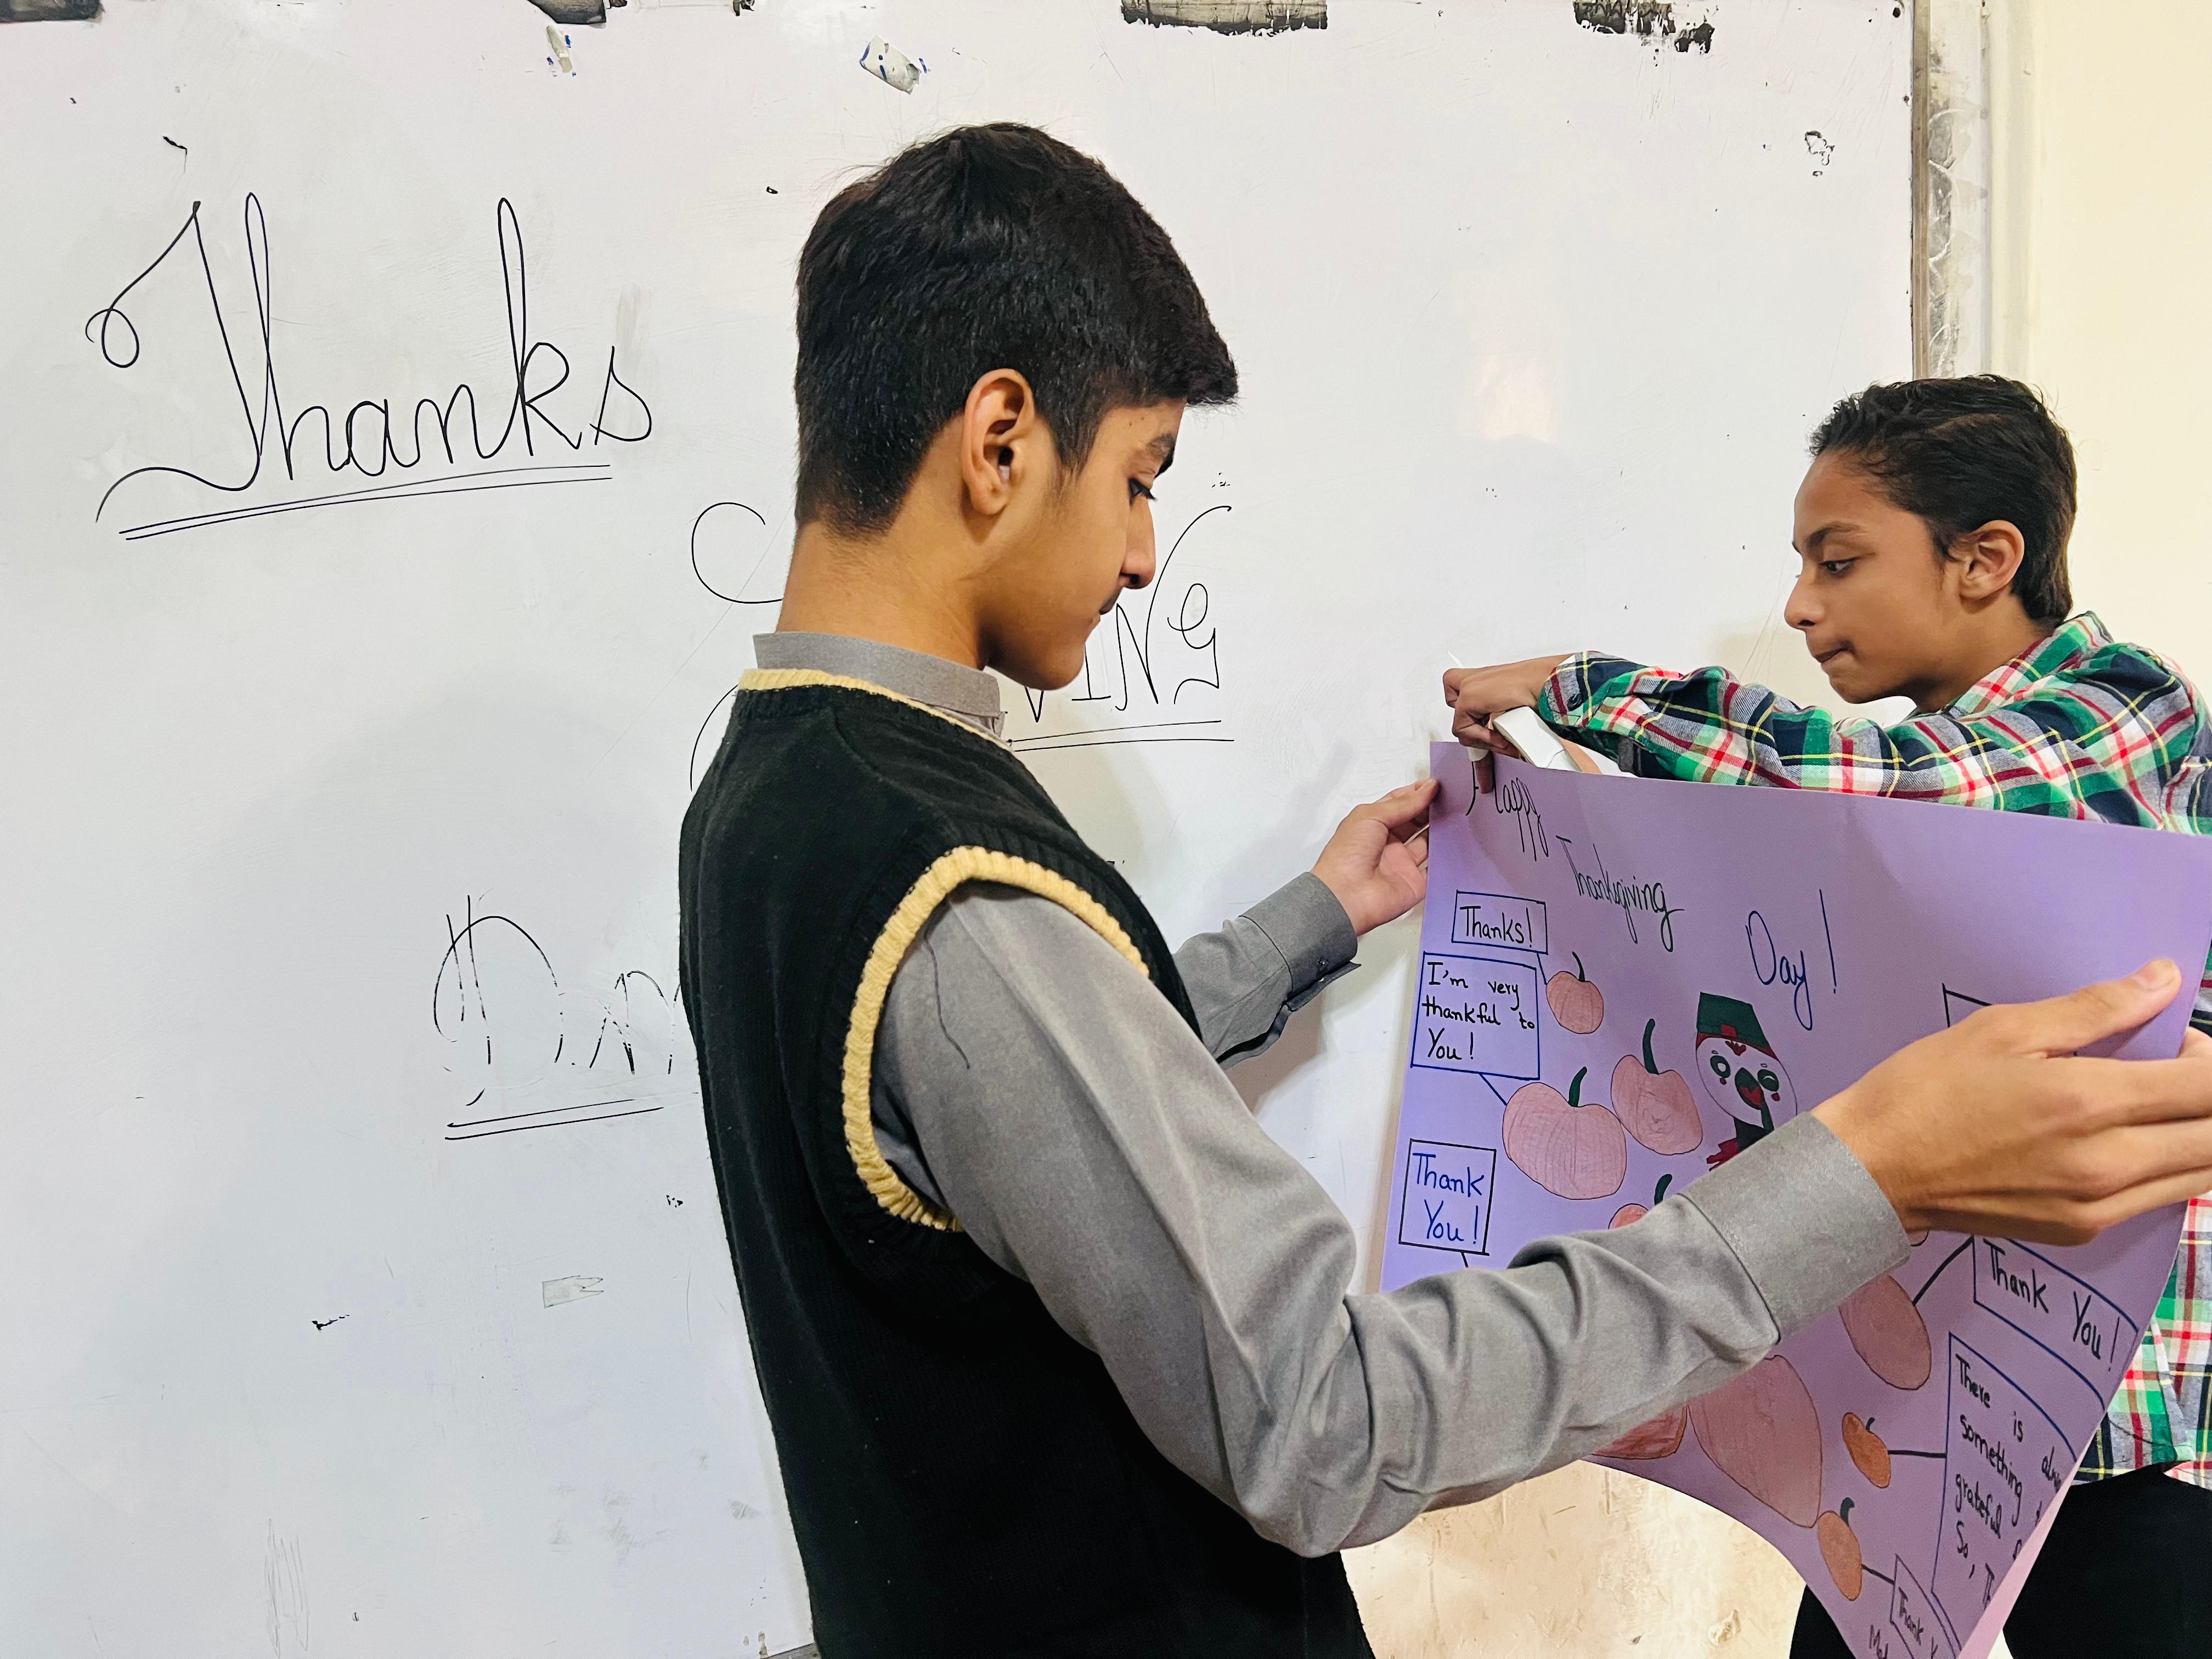 Thanks
VING
Happy
Thanksgiving
Day!
Thanks!
I'm very
thankful to
You!
Thank
You!
Thank You!
There is
something
grateful
So,
Thank